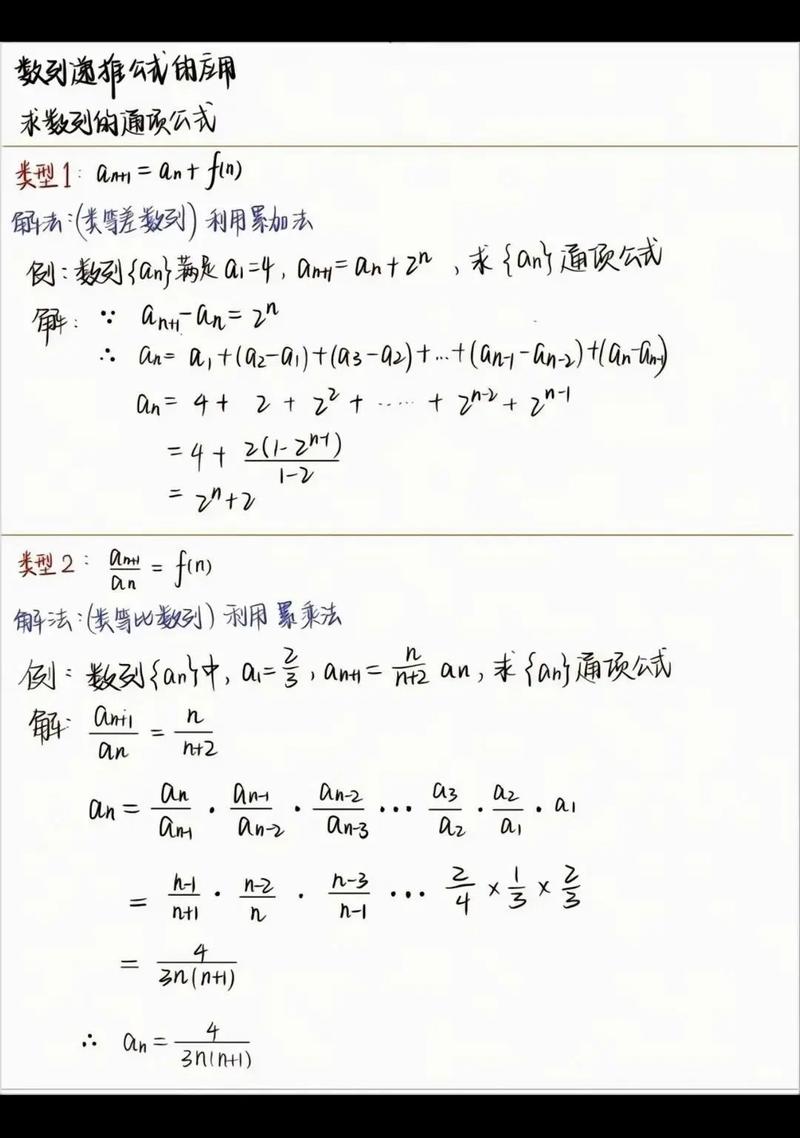 数列递推公式的应用
求数列的通项公式
类型1: aₙ₊₁ = aₙ + f(n)
解法:(类等差数列) 利用累加法
例: 数列{aₙ}满足 a₁=4, aₙ₊₁=aₙ+2ⁿ, 求{aₙ}通项公式
解: ∵ aₙ₊₁-aₙ=2ⁿ
∴ aₙ= a₁+(a₂-a₁)+(a₃-a₂)+...+(aₙ₋₁-aₙ₋₂)+(aₙ-aₙ₋₁)
aₙ= 4+ 2 + 2² + ...... + 2ⁿ⁻² + 2ⁿ⁻¹
= 4 + 2(1-2ⁿ⁻¹)/(1-2)
= 2ⁿ+2
类型2: aₙ₊₁/aₙ = f(n)
解法:(类等比数列) 利用累乘法
例: 数列{aₙ}中, a₁=2/3, aₙ₊₁= n/(n+2) aₙ, 求{aₙ}通项公式
解: aₙ₊₁/aₙ = n/(n+2)
aₙ = aₙ/aₙ₋₁ · aₙ₋₁/aₙ₋₂ · aₙ₋₂/aₙ₋₃ ··· a₃/a₂ · a₂/a₁ · a₁
= (n-1)/(n+1) · (n-2)/n · (n-3)/(n-1) ··· 2/4 × 1/3 × 2/3
= 4/(3n(n+1))
∴ aₙ = 4/(3n(n+1))